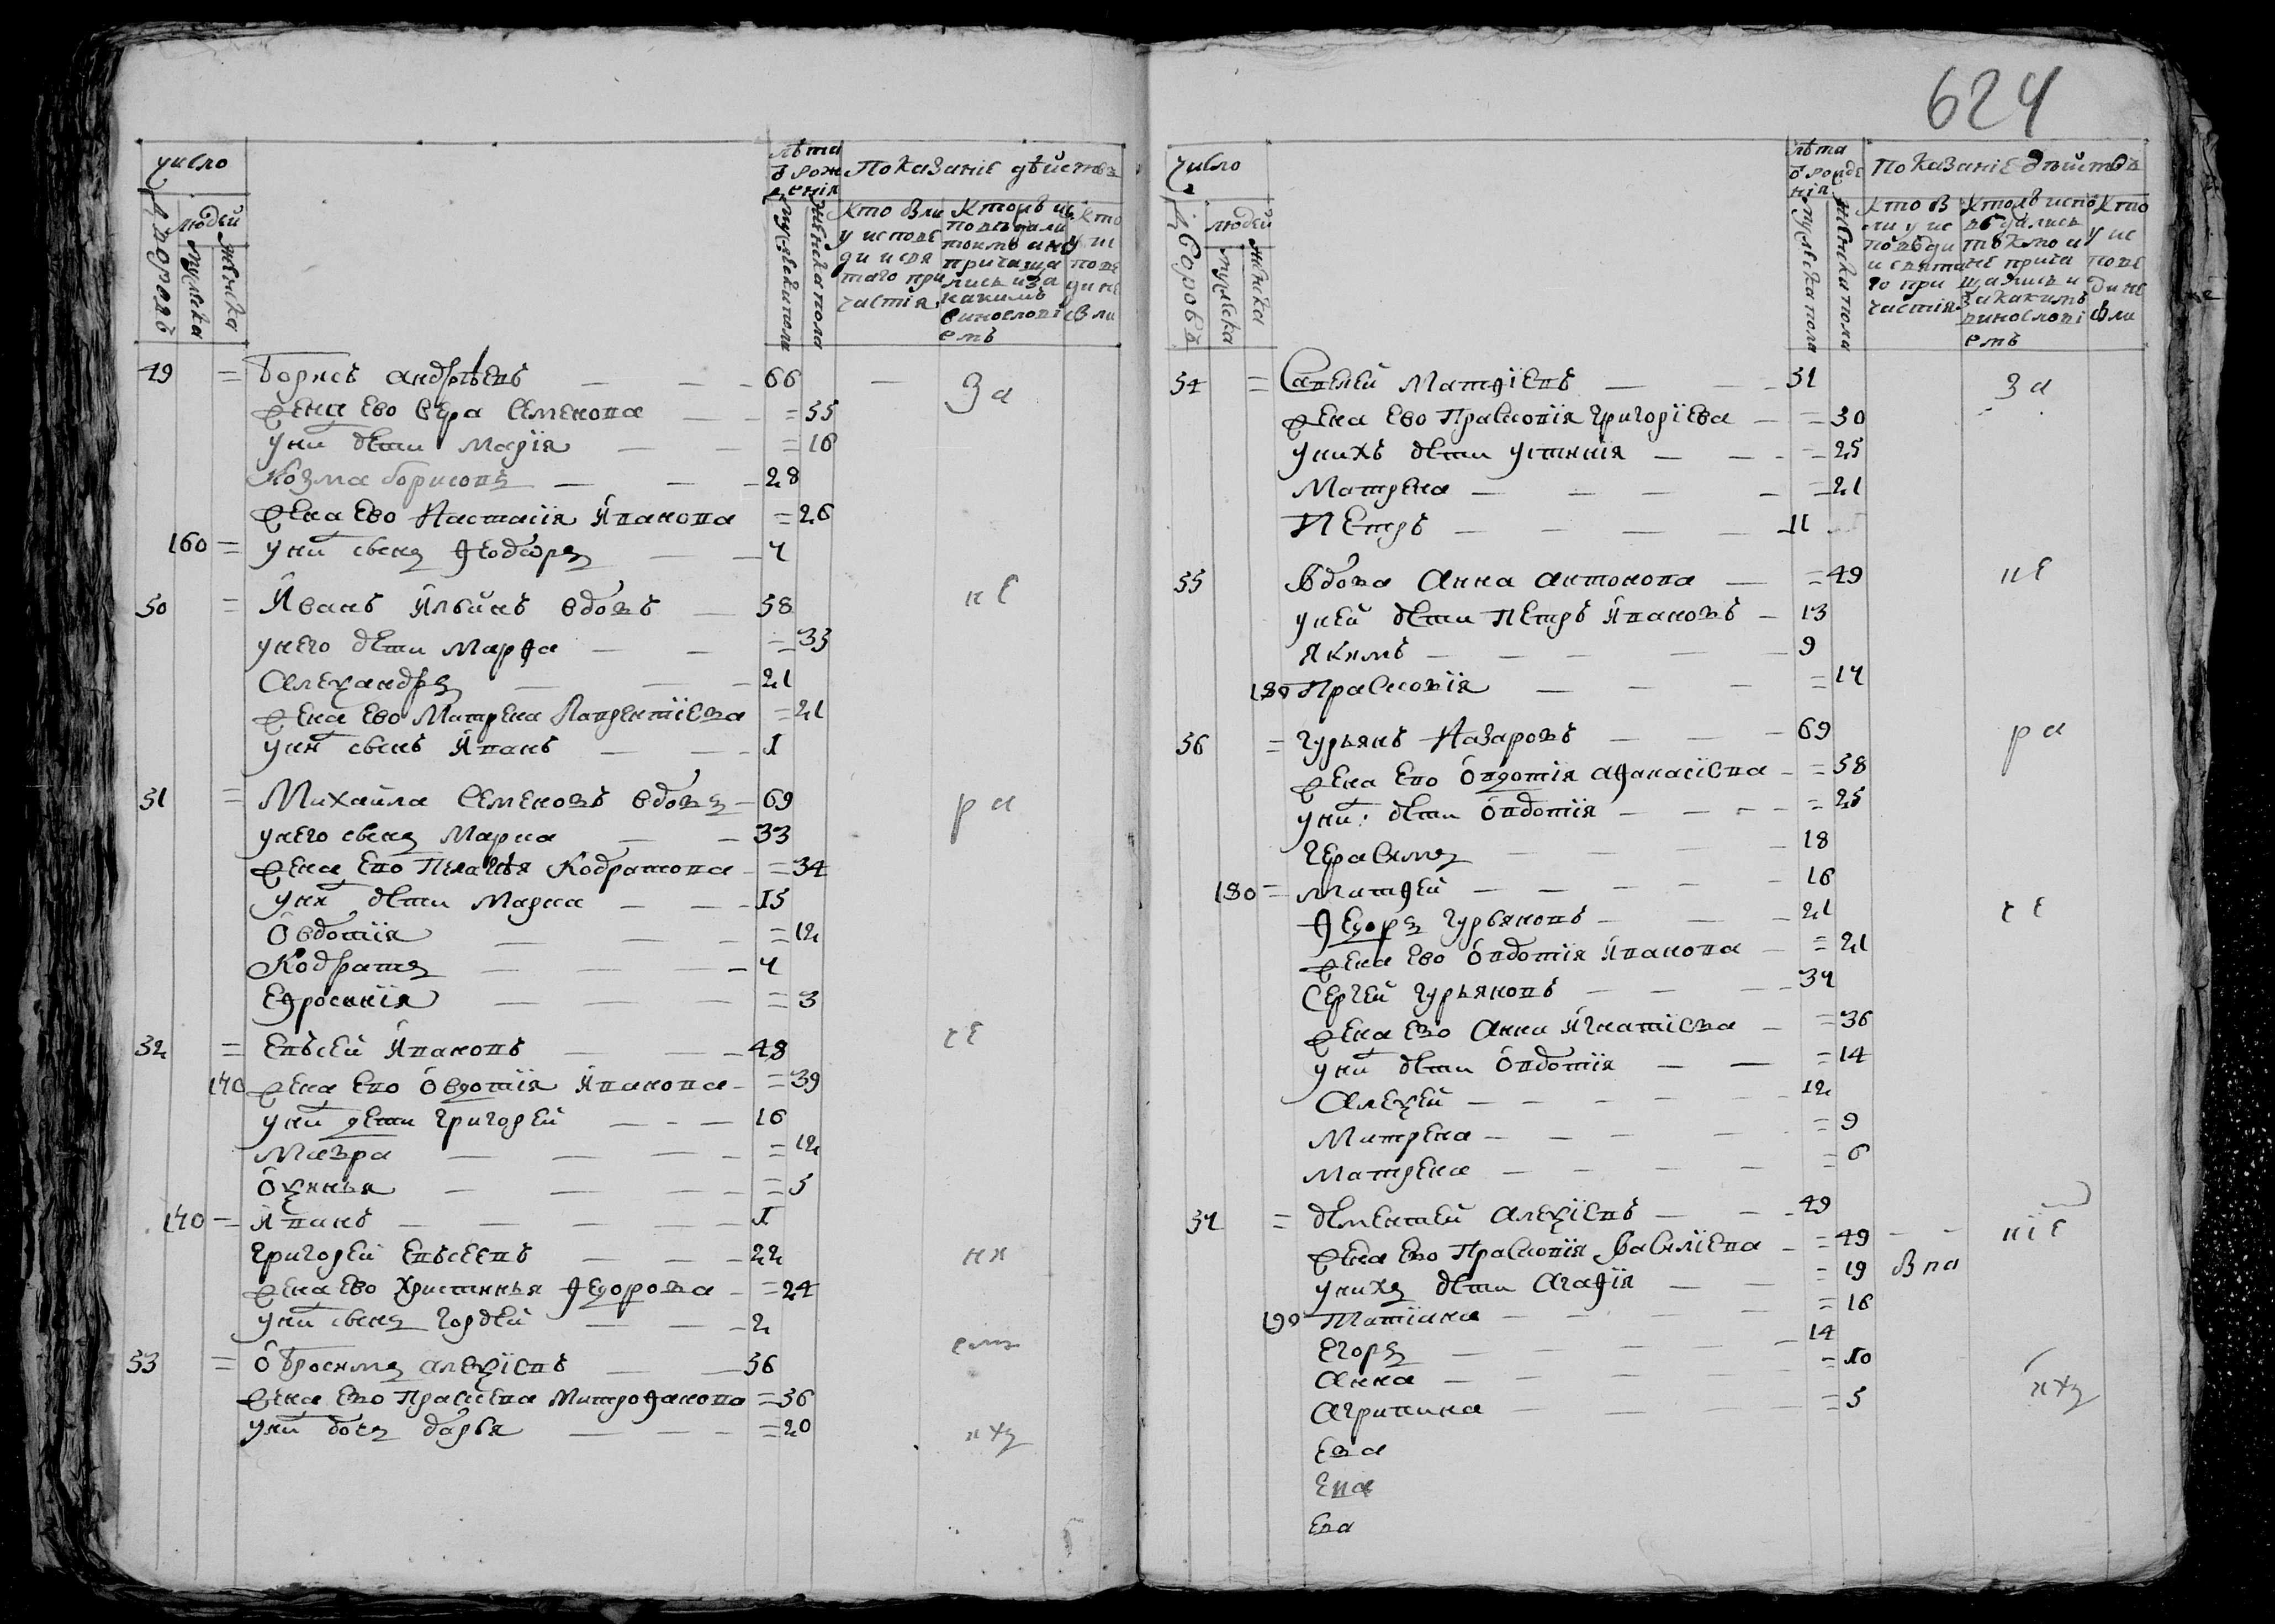 число
дворовъ
людей
мужеска
женска
лѣта
ѿ рож
денія
мужеска пола
женска пола
Показаніе дѣйства
кто вли
у исповѣ
ди исвя
таго при
частія
ктожъ ис
повѣдали
токмъ ине
причаща
лись иза
какимъ
винословi
емъ
кто
у ис
повѣ
ди не
были
49 = Борисъ андрѣевъ — — — 66 — За
жена ево вера семенова — — = 55
уни дети мария — — = 16
Козма борисовъ — — — 28
жена ево Настасїя Ивановa = 26
160 = уни сынъ Ѳеодоръ — — 4
50 = Иванъ Ильинъ вдовъ — 58 не
унего дети марѳа — — = 33
Алеѯандръ — — — 21
жена ево Матрена Лаврентїева = 21
уни сынъ Иванъ — — — 1
51 = Михайла Семеновъ вдовъ — 69 ра
унего сынъ Марка — — 33
жена ево Пелагѣя Кодратова — = 34
уни дети Марка — — — 15
Овдотїя — — — = 12
Кодратъ — — — — 4
Еѳросинїя — — — = 3
52 = Евъсей Ивановъ — — — 48 че
170 жена ево Овдотїя Иванова — = 39
уни дети Григорей — — — 16
Мавра — — — — = 12
Оѯинья — — — — = 5
170 — Иванъ — — — — — 1
Григорей Евъсеевъ — — — 22 ни
жена ево Христинья Ѳедорова — = 24
уни сынъ Гордей — — — 2
емъ
53 = Обросимъ алеѯїевъ — — 56
жена ево Прасковa Митрофанова = 56
уни дочь дарья — — — = 20 ихъ
624
число
дворовъ
людей
мужеска
женска
лѣта
ѿ рожде
нія
мужеска пола
женска пола
Показаніе дѣйствъ
кто в
ли у ис
повѣди
и свята
го при
частія
ктолѣ испо
вѣдались
токмо и
не прича
щались и
за какимъ
винословi
емъ
кто
у ис
повѣ
ди не
были
54 = Савелей Матѳїевъ — — — 51 За
жена ево Прасковїя Григорїева — = 30
унихъ дети устинїя — — — = 25
Матрена — — — — = 21
Петръ — — — — 11
55 Вдова Анна антонова — = 49 не
уней дети Петръ Ивановъ — 13
Якимъ — — — — — 9
180 Прасковїя — — — = 14
56 = Гурьянъ Назаровъ — — — 69 ра
жена ево Овдотїя аѳанасїева — = 58
уни дети Овдотїя — — — — = 25
Герасимъ — — — — 18
180 = Матѳей — — — — — 16
Ѳедоръ Гурьяновъ — — 21 че
жена ево Овдотїя Иванова — = 21
Сергей Гурьяновъ — — — 34
жена ево Анна Игнатїева — = 36
уни дети Овдотїя — — = 14
Алеѯей — — — — — 12
Матрена — — — — = 9
Матрена — — — — = 6
57 = дементей Алеѯїевъ — — — 49
жена ево Прасковїя Василїева — = 49 — — нїе
унихъ дети Агаѳїя — — = 19 Вла
190 Татїана — — — — = 16
Егоръ — — — — — 14
Анна — — — — = 10
Агрипина — — — — = 5 ихъ
Ева
Ева
Ева